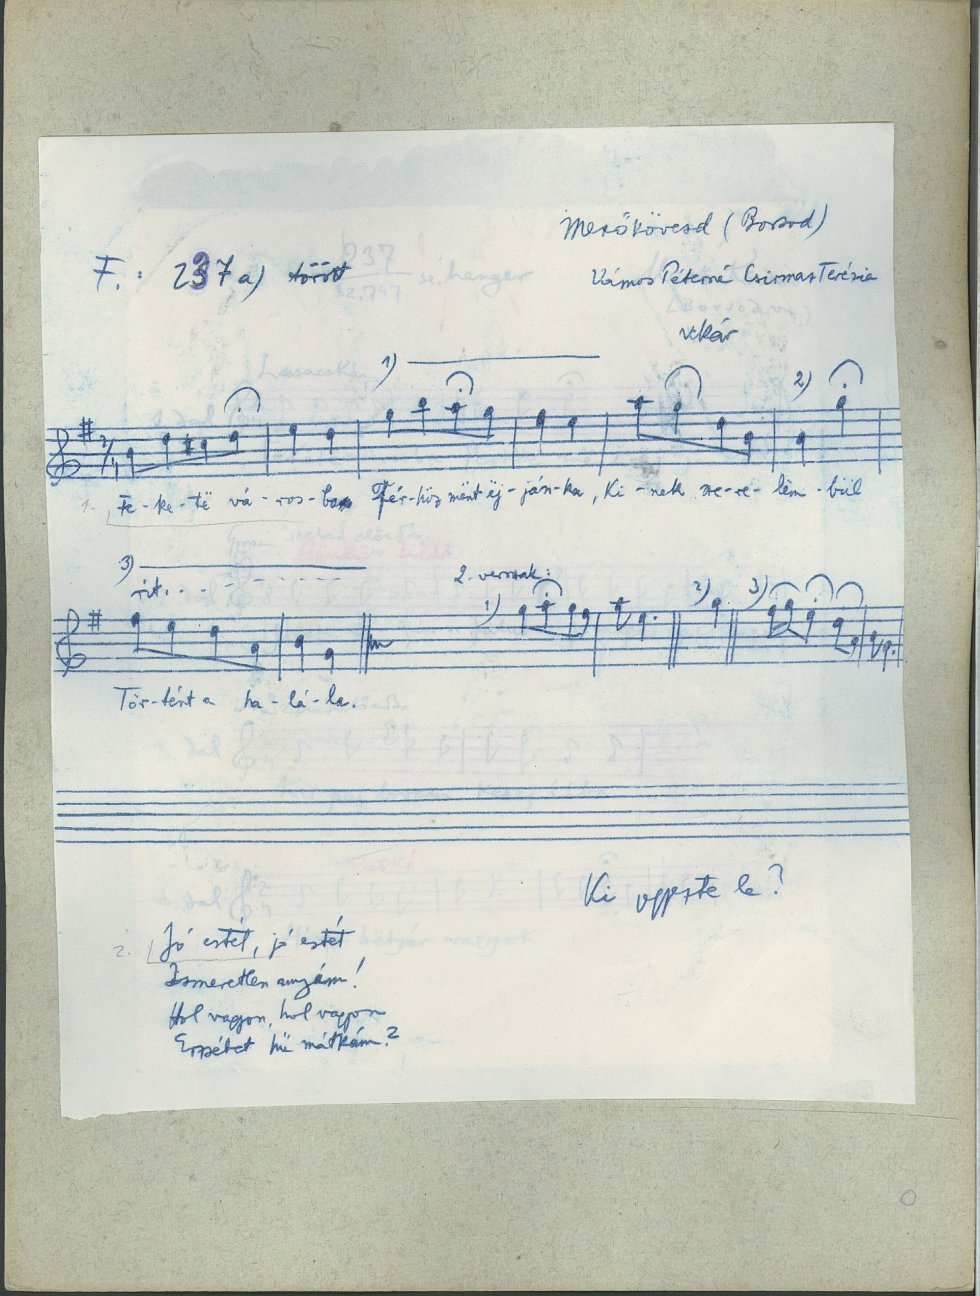 Mezőkövesd (Borsod)
F.: 237 a) törött
Vámos Péterné Csirmas Terézia
Vikár
1)
2)
2/4
1. Fe-ke-të vá-ros-ba Fér-höz mënt ëj-ján-ka, Ki-nek sze-re-lëm-bül
3)
rit. . . 2. versszak:
1) 2) 3)
Tör-tént a ha-lá-la.
Ki jegyezte le?
2. Jó estét, jó estét
Ismeretlen anyám!
Hol vagyon, hol vagyon
Erzsébet hű mátkám?